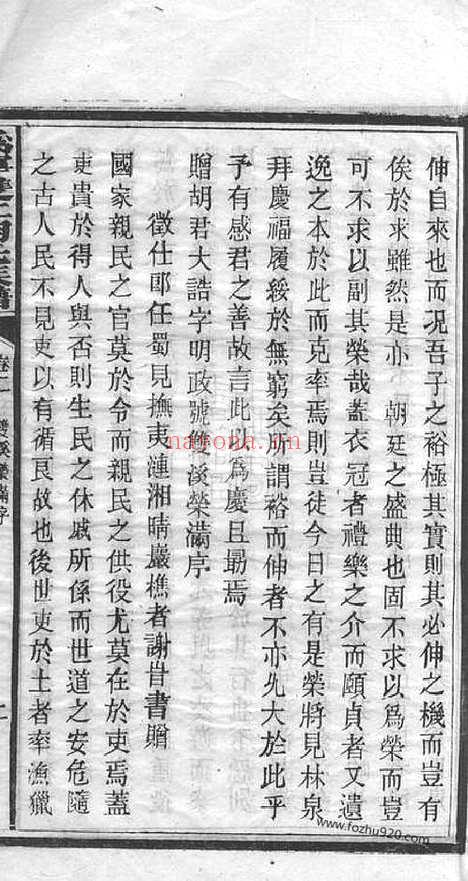 伸自來也而况吾子之裕極其實則其必伸之機而豈有
俟於求雖然是亦 朝廷之盛典也固不求以爲榮而豈
可不求以副其榮哉蓋衣冠者禮樂之介而頤貞者又遺
逸之本於此而克率焉則豈徒今日之有是榮將見林泉
拜慶福履綏於無窮矣所謂裕而伸者不亦尤大於此乎
予有感君之善故言此以爲慶且勗焉
贈胡君大誥字明政號雙溪榮滿序
徵仕郎任蜀見撫夷漣湘晴巖樵者謝旹書贈
國家親民之官莫於令而親民之供役尤莫在於吏焉蓋
吏貴於得人與否則生民之休戚所係而世道之安危隨
之古人民不見吏以有循良故也後世吏於土者率漁獵
卷二
雙溪榮滿序
nayona.cn
www.fozhu920.com